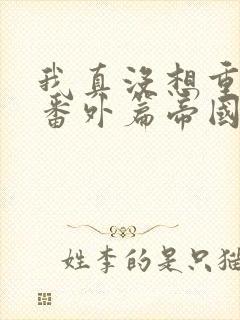 我真没想重
番外篇帝國
姓李的是只猫